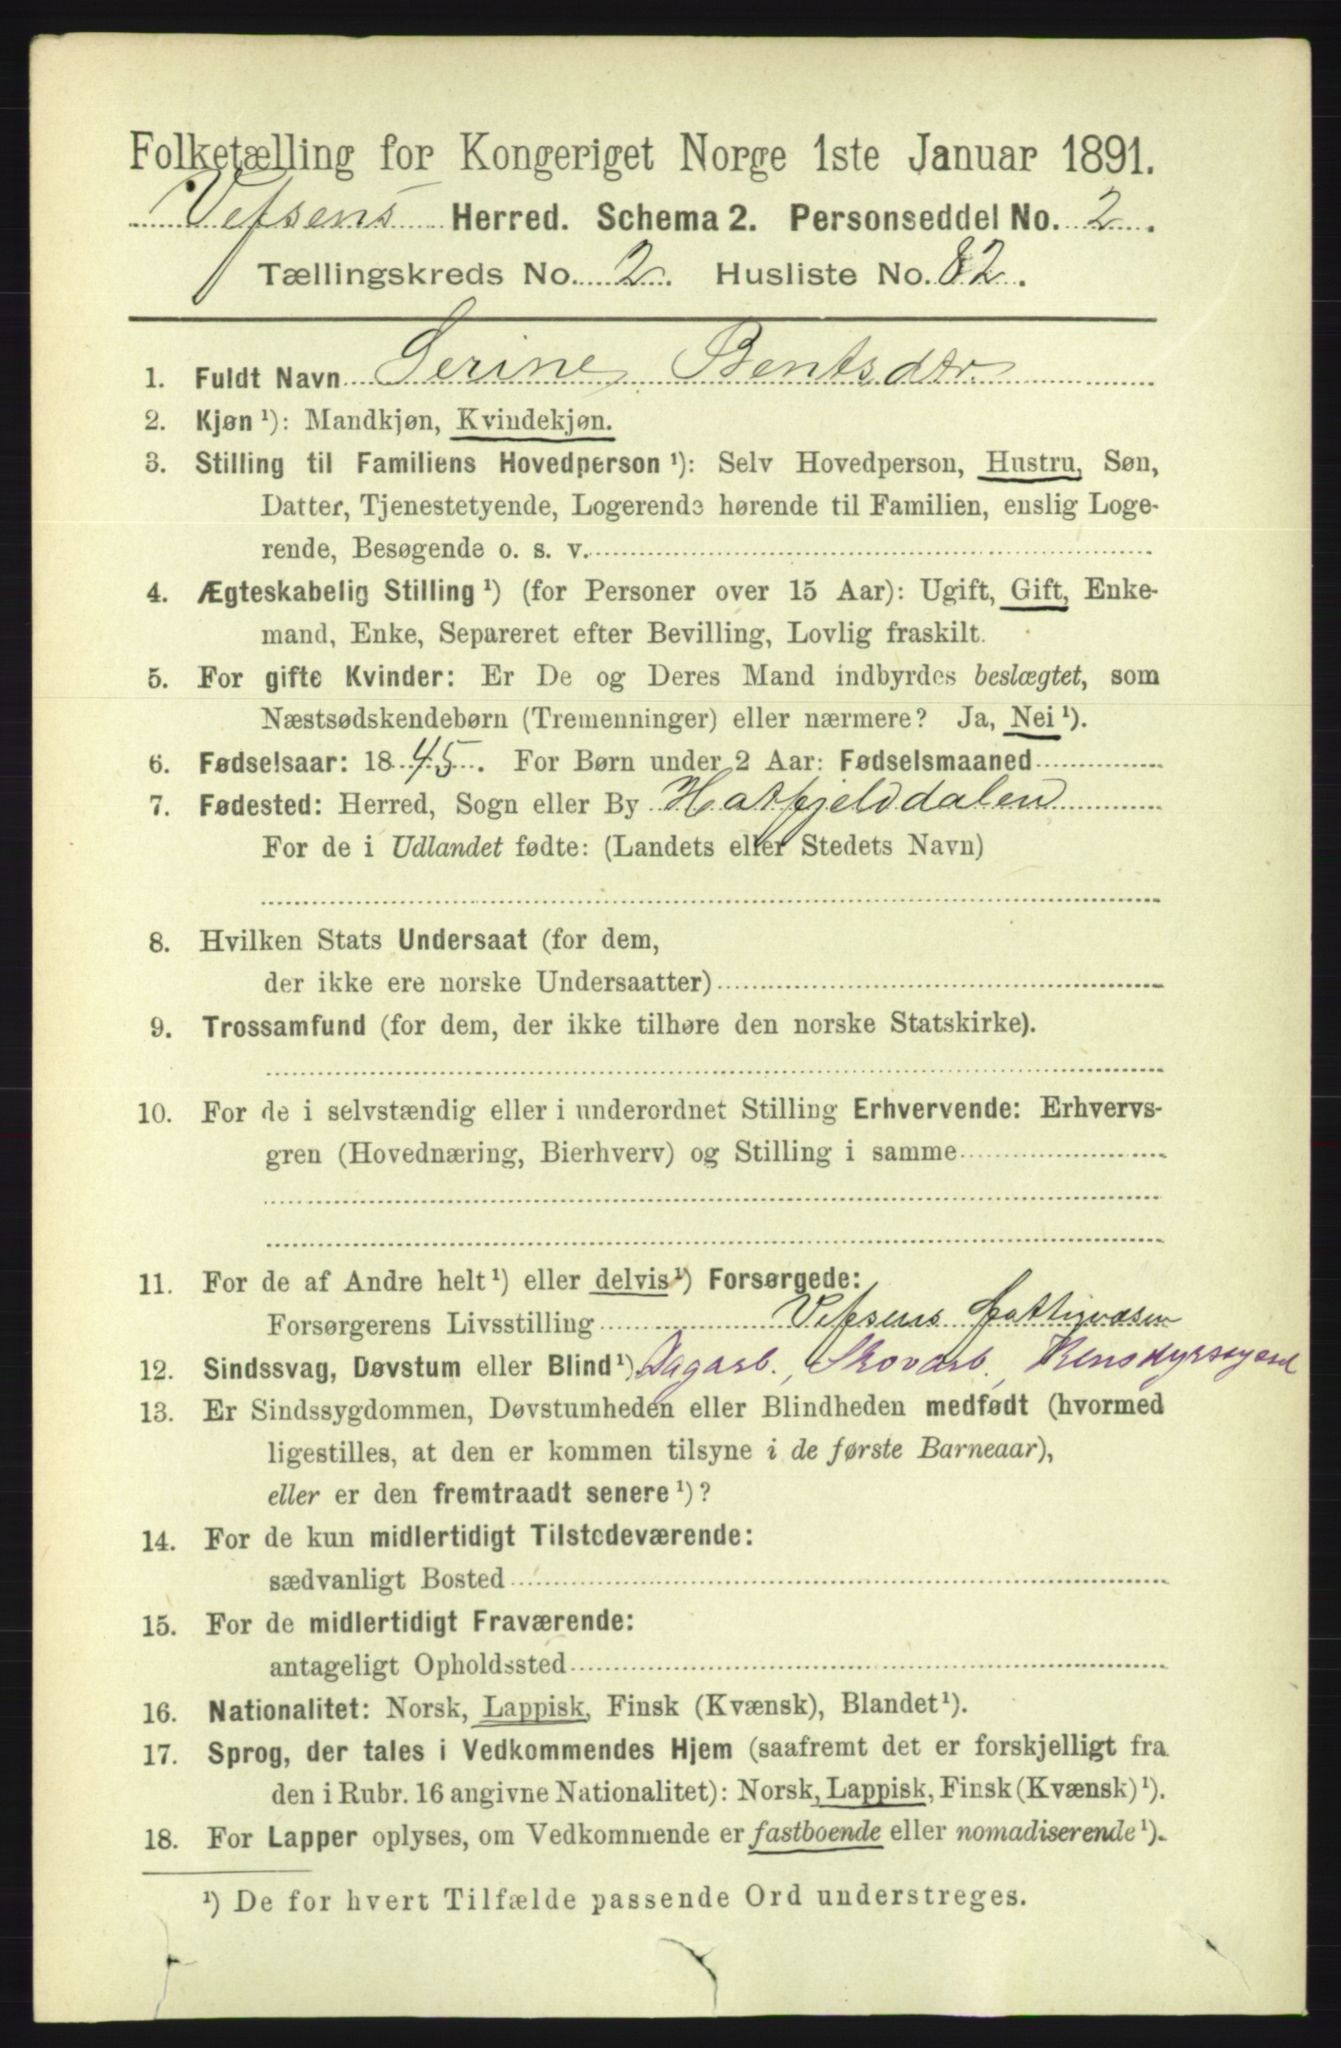 Folketælling for Kongeriget Norge 1ste Januar 1891.
Vefsens Herred. Schema 2. Personseddel No. 2.
Tællingskreds No. 2. Husliste No. 82.
1. Fuldt Navn Serine Bentsdtr.
2. Kjøn ¹): Mandkjøn, Kvindekjøn.
3. Stilling til Familiens Hovedperson ¹): Selv Hovedperson, Hustru, Søn,
Datter, Tjenestetyende, Logerende hørende til Familien, enslig Loge-
rende, Besøgende o. s. v.
4. Ægteskabelig Stilling ¹) (for Personer over 15 Aar): Ugift, Gift, Enke-
mand, Enke, Separeret efter Bevilling, Lovlig fraskilt.
5. For gifte Kvinder: Er De og Deres Mand indbyrdes beslægtet, som
Næstsødskendebørn (Tremenninger) eller nærmere? Ja, Nei ¹).
6. Fødselsaar: 1845. For Børn under 2 Aar: Fødselsmaaned
7. Fødested: Herred, Sogn eller By Hatfjelddalen
For de i Udlandet fødte: (Landets eller Stedets Navn)
8. Hvilken Stats Undersaat (for dem,
der ikke ere norske Undersaatter)
9. Trossamfund (for dem, der ikke tilhøre den norske Statskirke).
10. For de i selvstændig eller i underordnet Stilling Erhvervende: Erhvervs-
gren (Hovednæring, Bierhverv) og Stilling i samme
11. For de af Andre helt ¹) eller delvis ¹) Forsørgede:
Forsørgerens Livsstilling Vefsens Fattigvæsen
12. Sindssvag, Døvstum eller Blind ¹) Dagarb., Skovarb.,
13. Er Sindssygdommen, Døvstumheden eller Blindheden medfødt (hvormed
ligestilles, at den er kommen tilsyne i de første Barneaar),
eller er den fremtraadt senere ¹)?
14. For de kun midlertidigt Tilstedeværende:
sædvanligt Bosted
15. For de midlertidigt Fraværende:
antageligt Opholdssted
16. Nationalitet: Norsk, Lappisk, Finsk (Kvænsk), Blandet ¹).
17. Sprog, der tales i Vedkommendes Hjem (saafremt det er forskjelligt fra
den i Rubr. 16 angivne Nationalitet): Norsk, Lappisk, Finsk (Kvænsk) ¹).
18. For Lapper oplyses, om Vedkommende er fastboende eller nomadiserende ¹).
¹) De for hvert Tilfælde passende Ord understreges.